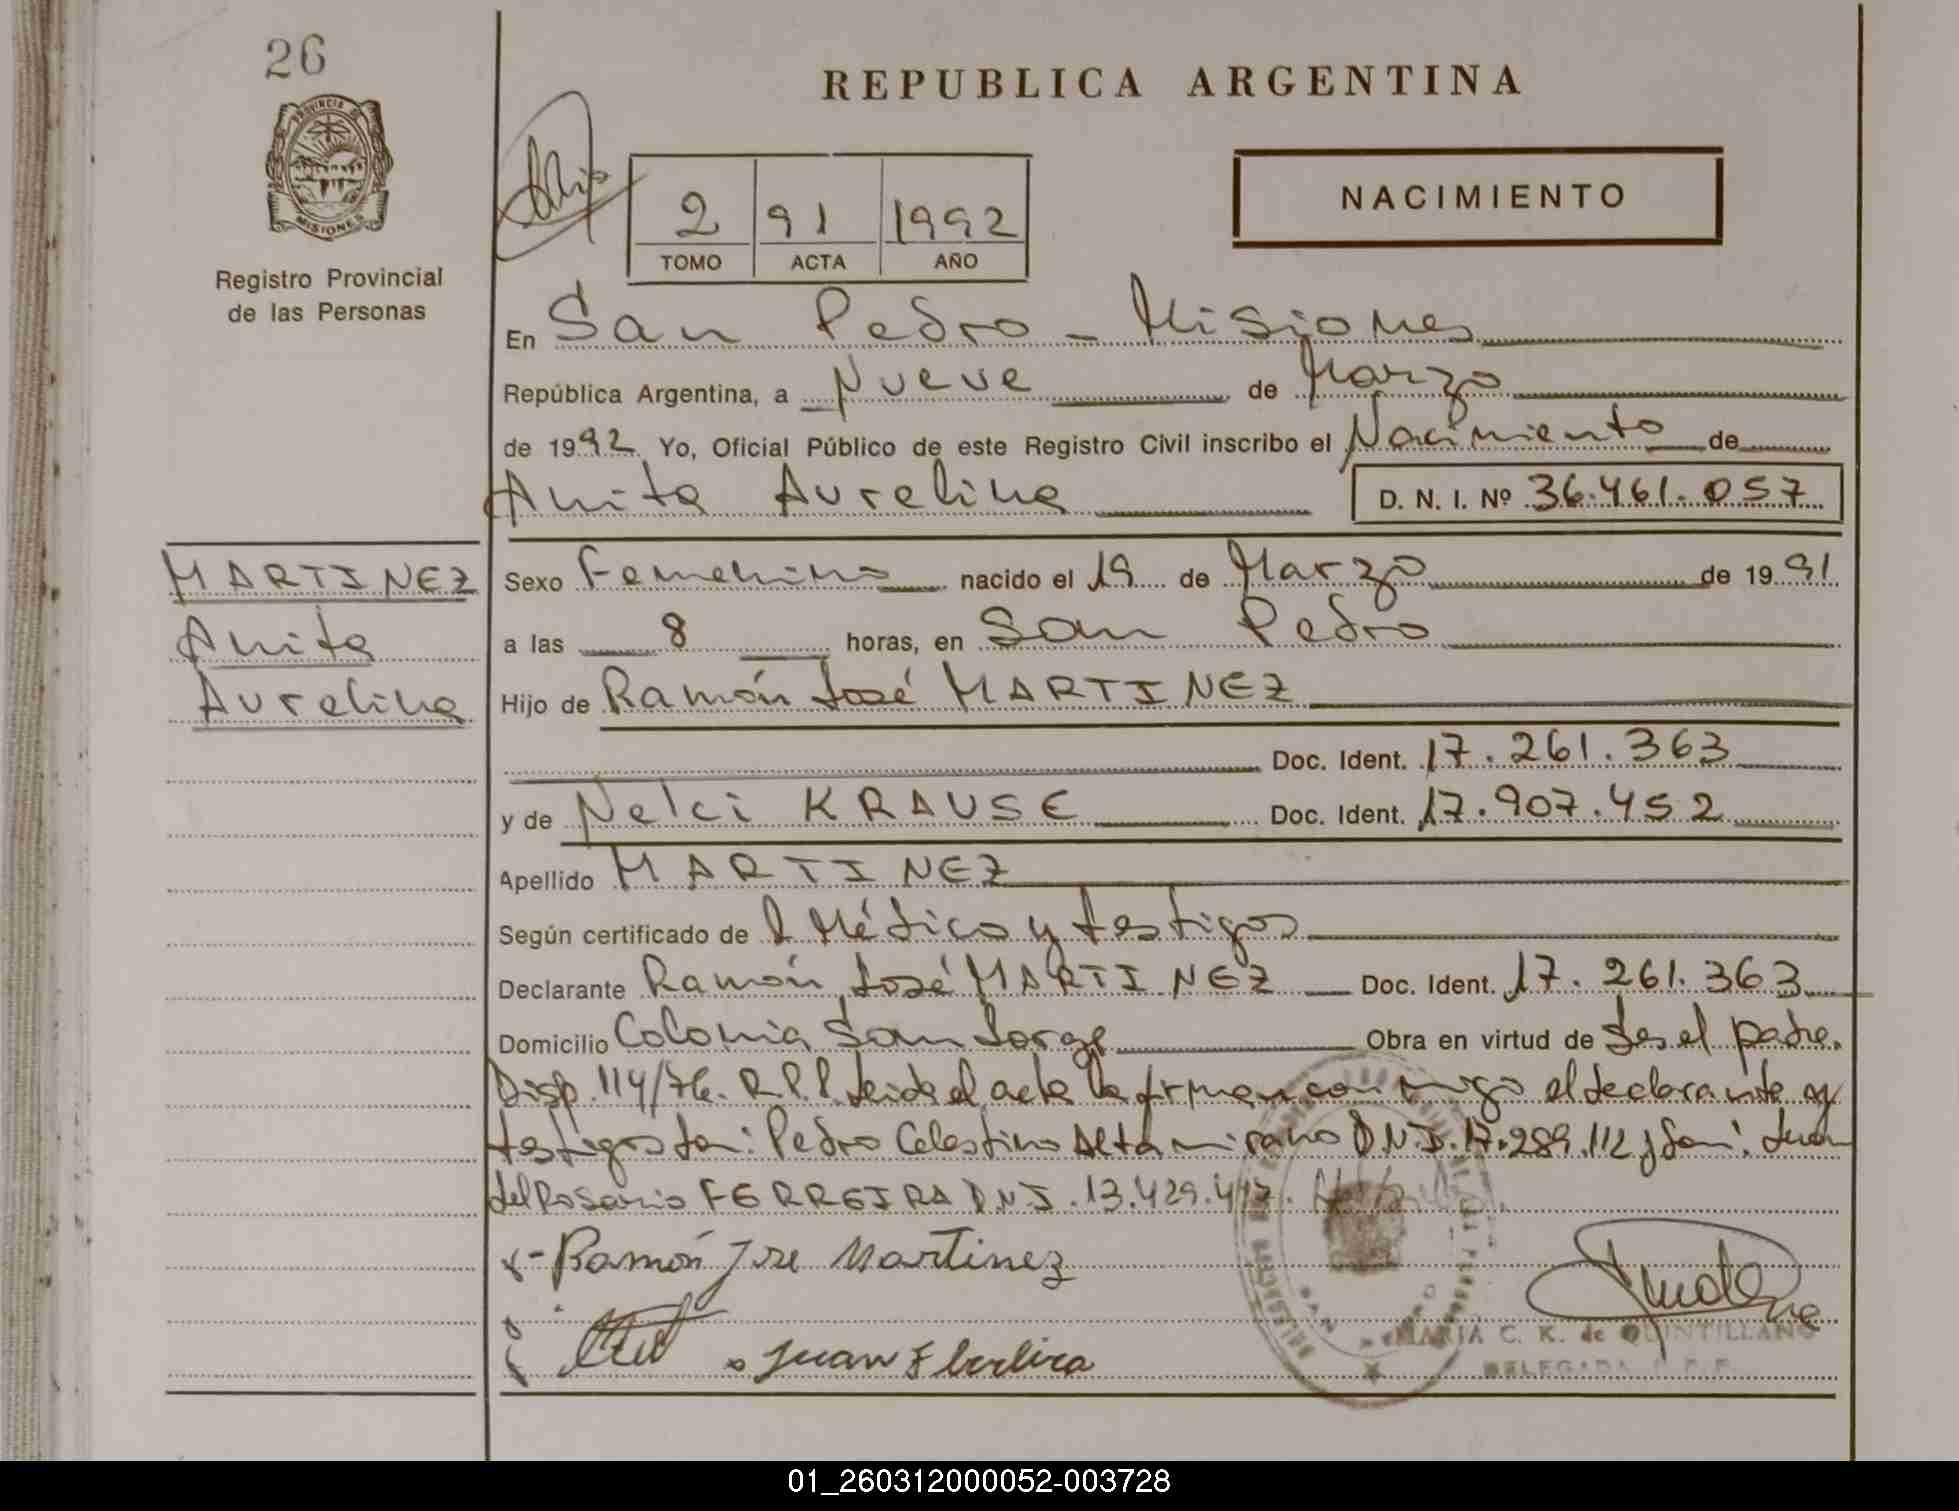 26
REPUBLICA ARGENTINA
PROVINCIA DE MISIONES
Registro Provincial
de las Personas
2 91 1992
TOMO ACTA AÑO
NACIMIENTO
En San Pedro - Misiones
República Argentina, a Nueve de Marzo
de 1992 Yo, Oficial Público de este Registro Civil inscribo el Nacimiento de
Anita Aurelina D. N. I. Nº 36.461.057
MARTINEZ
Anita
Aurelina
Sexo Femenino nacido el 19 de Marzo de 1991
a las 8 horas, en San Pedro
Hijo de Ramón José MARTINEZ
Doc. Ident. 17.261.363
y de Nelci KRAUSE Doc. Ident. 17.907.452
Apellido MARTINEZ
Según certificado de Médico y testigos
Declarante Ramón José MARTINEZ Doc. Ident. 17.261.363
Domicilio Colonia San Jorge Obra en virtud de ser el padre.
Disp. 114/76. R.P.P. Leida el acta la firman conmigo el declarante y
testigos Pedro Celestino Altamirano D.N.I. 17.289.112 y Juan
del Rosario FERREIRA D.N.I. 13.429.
Ramón José Martinez
Juan
MARIA C. K. de QUINTILLANO
DELEGADA
01_260312000052-003728